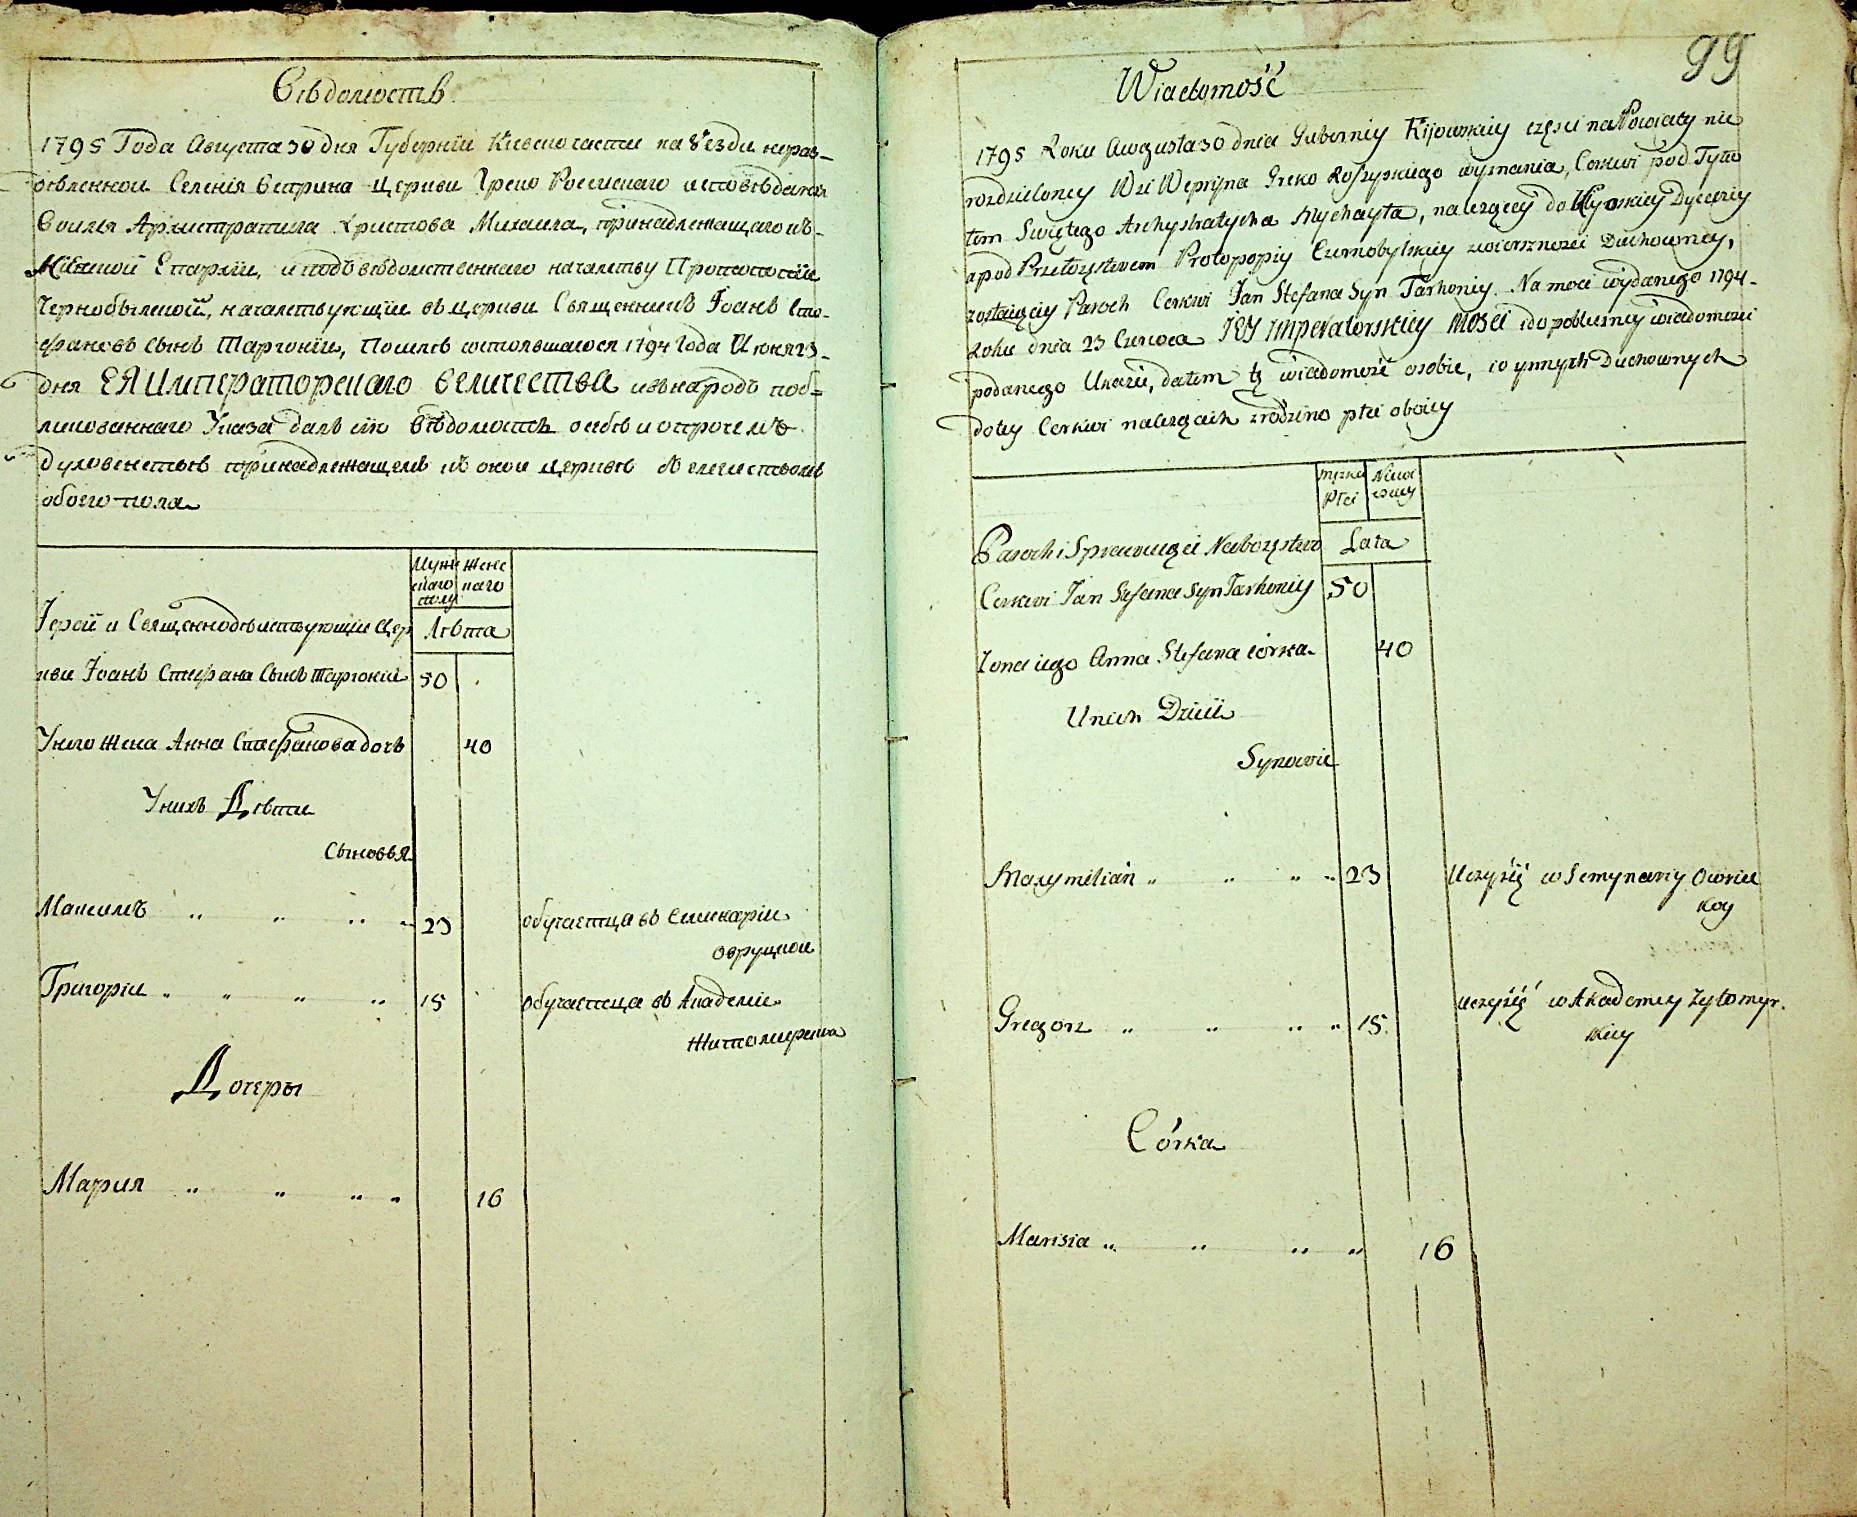 Вѣдомость
1795 Года Августа 30 дня Губернїи Киевской части на Уезди нераз-
дѣленной Селенїя Веприна Церкви Греко Россискаго исповѣданїя
Воимя Архистратига Христова Михаила, принадлежащаго къ
Кїевской Епархїи, и подъ вѣдомственнаго началству Протопопїи
Чернобылской, началствующїи въ Церкви Священникъ Іоанъ Сте-
фановъ сынъ Таргонїи, Посилѣ состоявшагося 1794 Года Июня 23-
дня ЕЯ Императорскаго Величества изъ народъ поб-
ликованнаго Указа далъ сїю Вѣдомость о себѣ и о прочемъ
Духовенствѣ принадлежащемъ къ оной Церквѣ
обоего пола
Мужескаго полу Женскаго
Лѣта
Іерей и Священнодѣиствующїи Цер
кви Іоанъ Стефана Сынъ Таргонїи 50
У него жена Анна Стефанова дочь 40
У нихъ Дѣти
Сыновья
Максимъ 23 обучаетца въ Семинарїи
Овруцкой
Григорїи 15 обучаетца въ Академїи
Житомирска
Дочеры
Мария 16
99
Wiadomość
1795 Roku Awgusta 30 dnia Guberniy Kijowskiy części na Powiaty nie
rozdzieloney Wsi Weprÿna Greko Rossyskiego wyznania, Cerkwi pod Tytu
tem Swiętego Archystratycha Mychayła, należącey do Kijowskiey Dyeceziy
a pod Przełożęstwem Protopopiy Czernobylskiey zwierzności Duchowney,
zostaiąciy Paroch Cerkwi Jan Stefana Syn Tarhoniy. Na moci wÿdanego 1794-
Roku dnia 23 Czerwca JEY IMPERATORSKIEY MOSCI i do publiczney wiadomości
podanego Ukazu, dałem tę wiadomość o sobie, i o ynnych Duchownych
do tey Cerkwi należących z rodzino płci oboiey
Męzkiey Płci Niewieściey
Lata
Paroch i Sprawuiąci Nabożęstwo
Cerkwi Jan Stefana Syn Tarhoniy 50
Żona iego Anna Stefana córka 40
U nich Dzieci
Synowie
Maxymilian 23 Uczyśię w Semynariy Owruc
koy
Gregorz 15 uczyśię w Akademiy Żytomyr.
skiey
Córka
Marisia 16